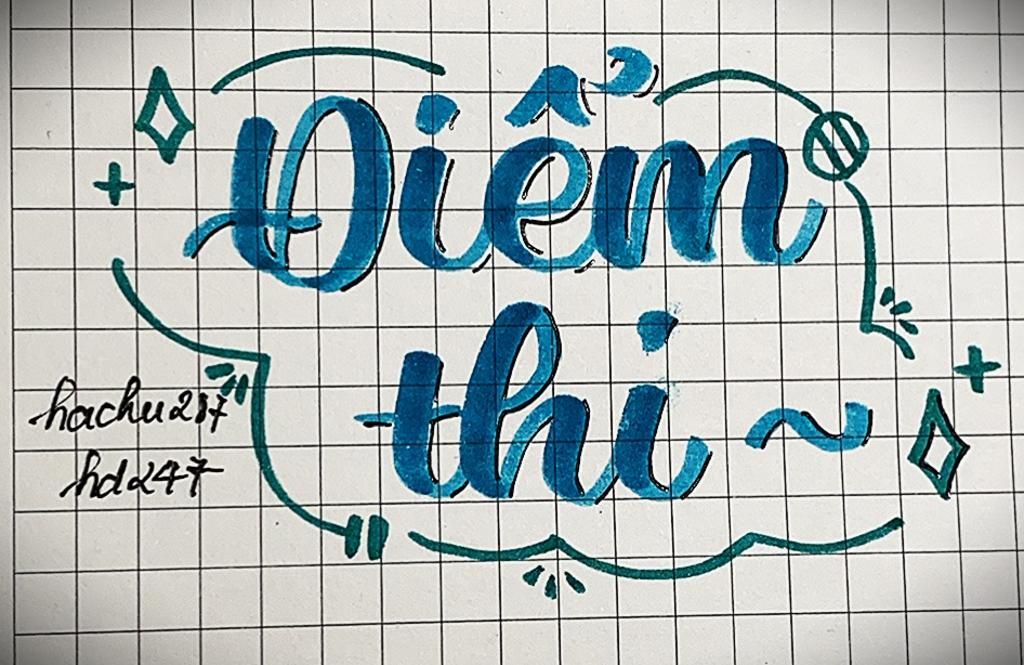 Điểm
thi ~
hachu287
hd247